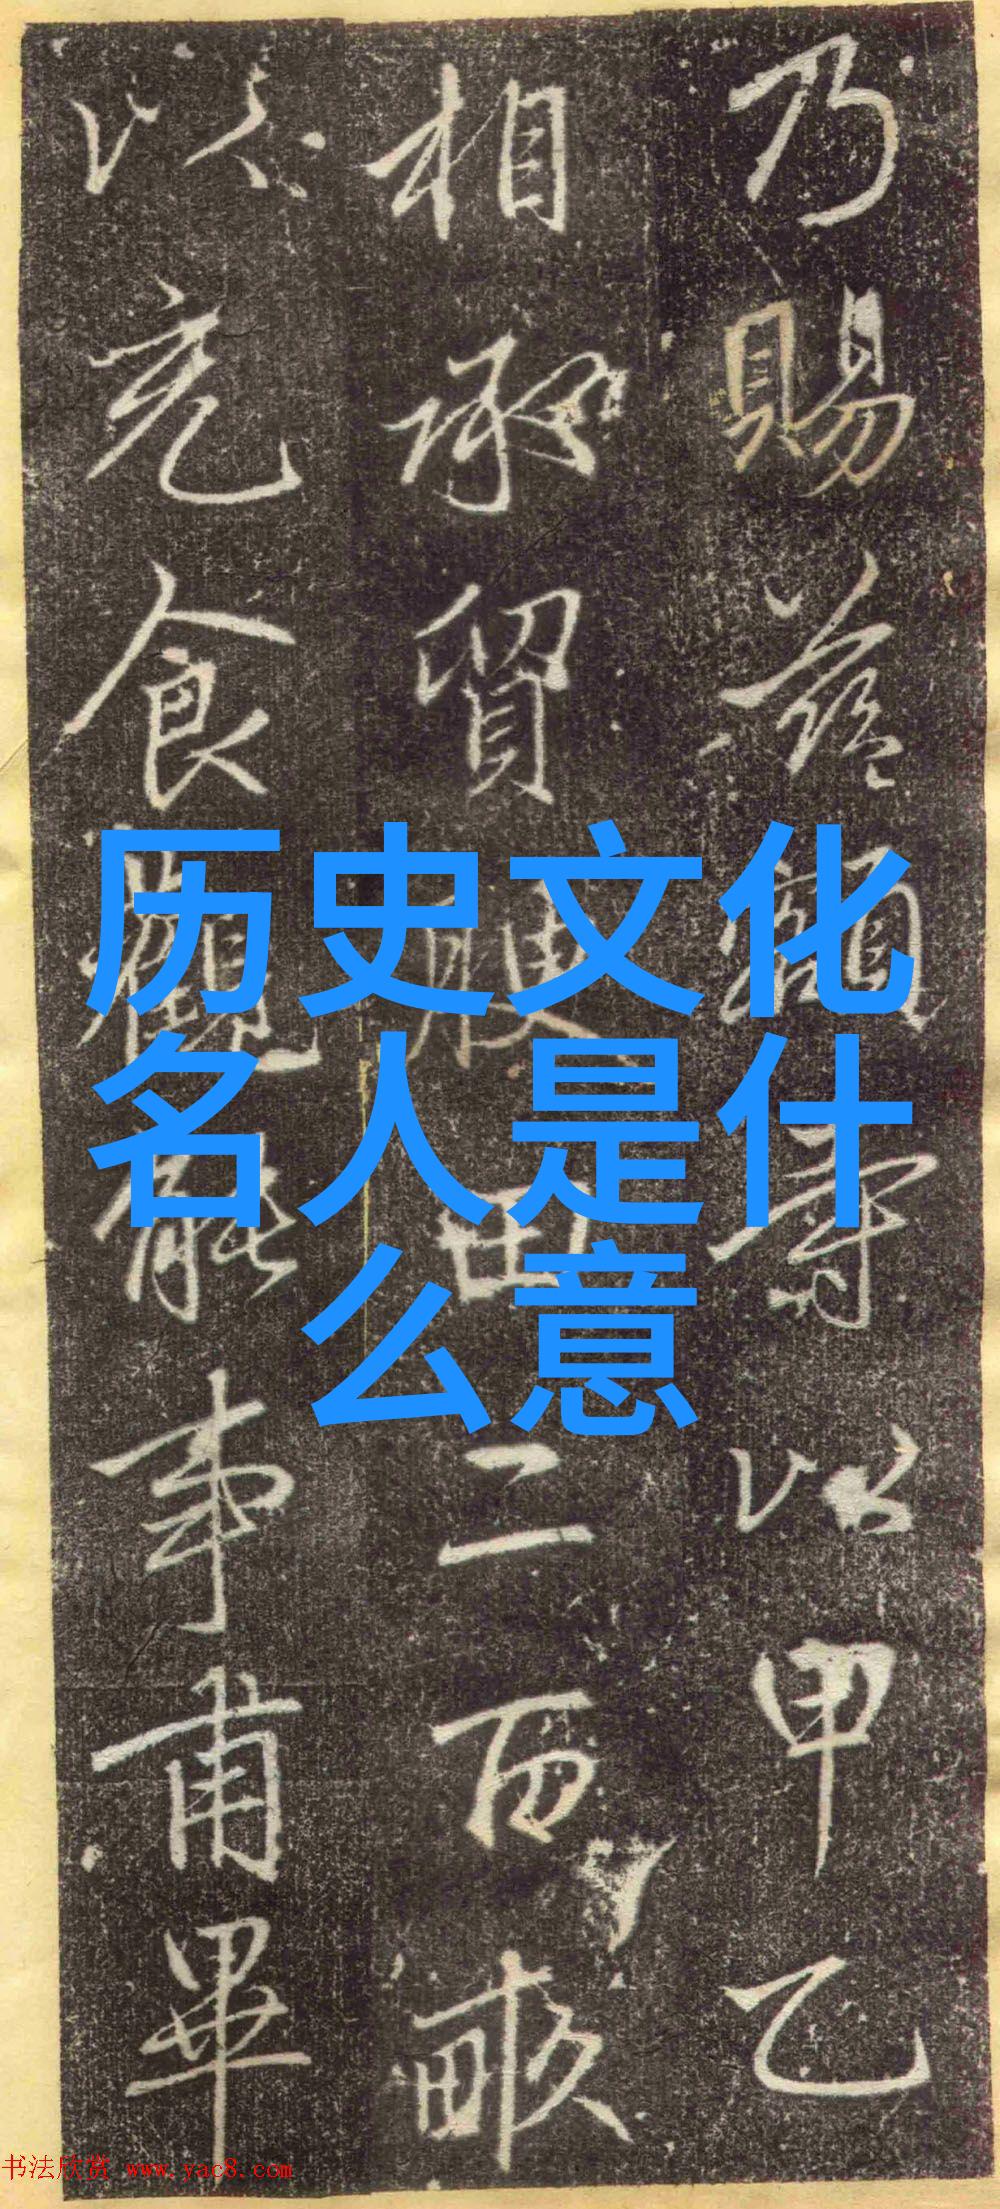 乃賜茲額尋以甲乙
相承貿腴田二百畝
以充食觀能事甫畢
历史文化
名人是什
么意
书法欣赏 www.yac8.com